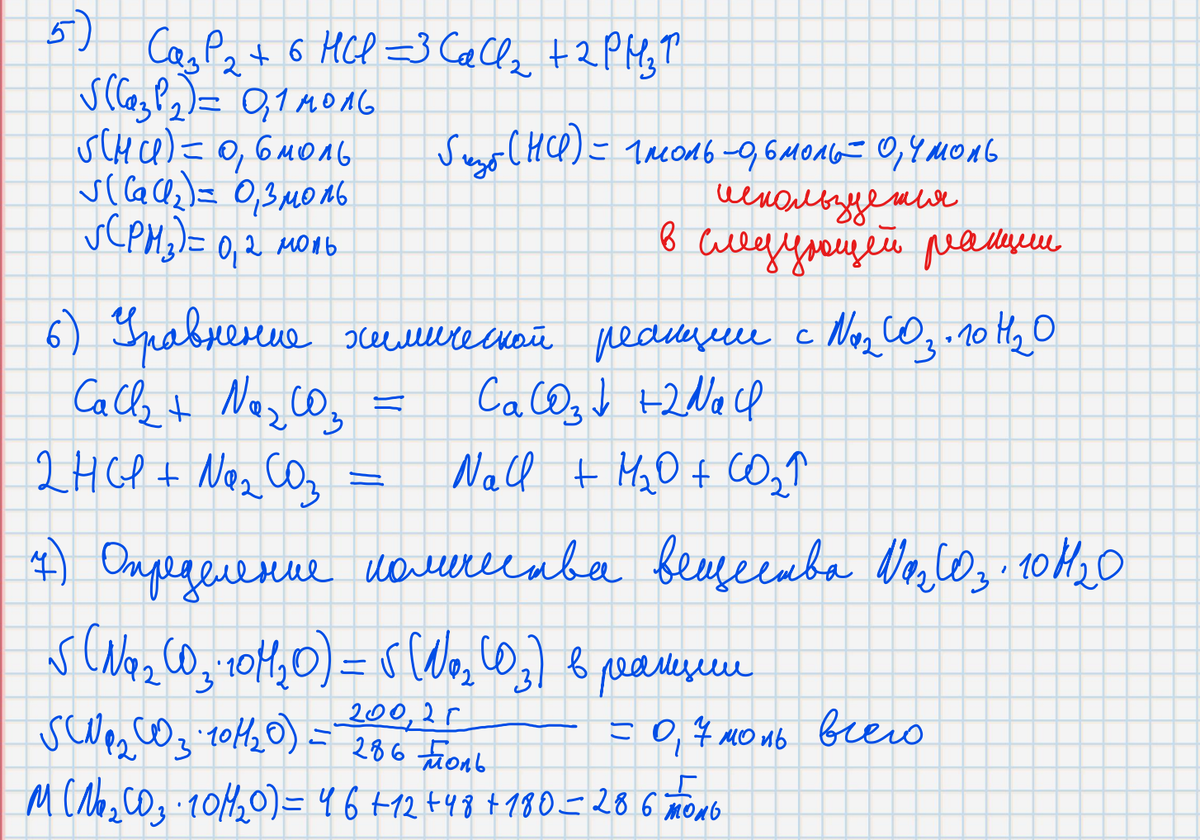 5) Ca₃P₂ + 6 HCl = 3CaCl₂ + 2PH₃↑
ν(Ca₃P₂) = 0,1 моль
ν(HCl) = 0,6 моль ν изб (HCl) = 1 моль - 0,6 моль = 0,4 моль
ν(CaCl₂) = 0,3 моль используется
ν(PH₃) = 0,2 моль в следующей реакции
6) Уравнение химической реакции с Na₂CO₃·10H₂O
CaCl₂ + Na₂CO₃ = CaCO₃↓ + 2NaCl
2HCl + Na₂CO₃ = NaCl + H₂O + CO₂↑
7) Определение количества вещества Na₂CO₃·10H₂O
ν(Na₂CO₃·10H₂O) = ν(Na₂CO₃) в реакции
ν(Na₂CO₃·10H₂O) = 200,2 г / 286 г/моль = 0,7 моль всего
M(Na₂CO₃·10H₂O) = 46 + 12 + 48 + 180 = 286 г/моль